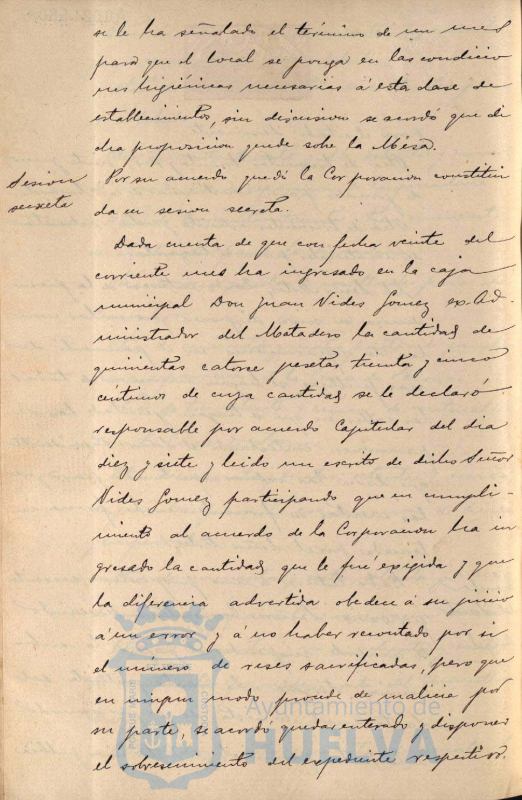 se le ha señalado el término de un mes
para que el local se ponga en las condicio
nes higiénicas necesarias á esta clase de
establecimientos, sin discusion se acordó que di
cha proposicion quede sobre la Mesa.
Sesion
secreta
Por su acuerdo quedó la Corporacion constitui
da en sesion secreta.
Dada cuenta de que con fecha veinte del
corriente mes ha ingresado en la caja
municipal Don Juan Vides Gomez ex-Ad-
ministrador del Matadero la cantidad de
quinientas catorse pesetas treinta y cinco
céntimos de cuya cantidad se le declaró
responsable por acuerdo Capitular del dia
diez y siete y leido un escrito de dicho Señor
Vides Gomez participando que en cumpli-
miento al acuerdo de la Corporacion ha in
gresado la cantidad que le fué exigida y que
la diferencia advertida obedece á su juicio
á un error y á no haber recontado por si
el número de reses sacrificadas, pero que
en ningun modo procede de malicia por
su parte, se acordó quedar enterado y disponer
el sobreseimiento del expediente respectivo.
Ayuntamiento de
HUELVA